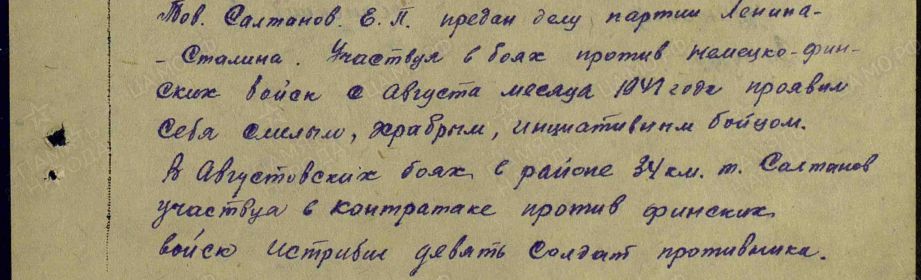 Тов. Салтанов. Е. П. предан делу партии Ленина-
- Сталина. Участвуя в боях против немецко-фин-
ских войск с Августа месяца 1941 года проявил
себя смелым, храбрым, инициативным бойцом.
В Августовских боях в районе 34 км. т. Салтанов
участвуя в контратаке против финских
войск истрибил девять солдат противника.